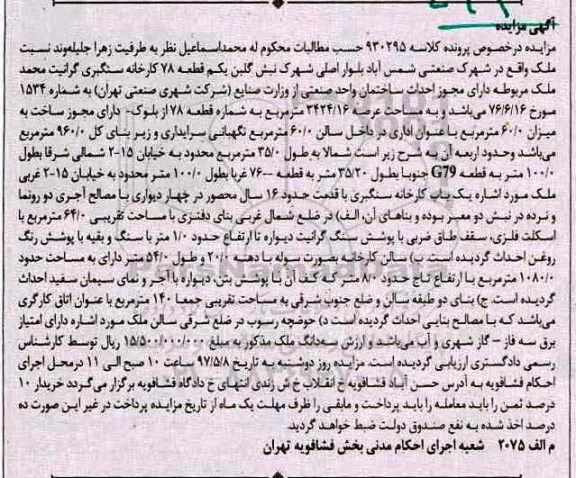 آگهی مزایده
مزایده درخصوص پرونده کلاسه ۹۳۰۲۹۵ حسب مطالبات محکوم له محمداسماعیل نظر به طرفیت زهرا جلیله‌وند نسبت
ملک واقع در شهرک صنعتی شمس آباد بلوار اصلی شهرک نبش گلبن یکم قطعه ۷۸ کارخانه سنگبری گرانیت محمد
ملک مربوطه دارای مجوز احداث ساختمان واحد صنعتی از وزارت صنایع (شرکت شهری صنعتی تهران) به شماره ۱۵۳۴
مورخ ۷۶/۶/۱۶ می‌باشد و به مساحت عرصه ۳۴۲۴/۱۶ مترمربع به شماره قطعه ۷۸ از بلوک- دارای مجوز ساخت به
میزان ۶۰/۰ مترمربع با عنوان اداری در داخل سالن ۶۰/۰ مترمربع نگهبانی سرایداری و زیر بنای کل ۹۶۰/۰ مترمربع
می‌باشد وحدود اربعه آن به شرح زیر است شمالا به طول ۳۵/۰ مترمربع محدود به خیابان ۱۵-۲ شمالی شرقا بطول
۱۰۰/۰ متر به قطعه G79 جنوبا بطول ۳۵/۲۰ متر به قطعه -۷۶ غربا بطول ۱۰۰/۰ متر محدود به خیابان ۱۵-۲ غربی
ملک مورد اشاره یک باب کارخانه سنگبری با قدمت حدود ۱۶ سال محصور در چهار دیواری با مصالح آجری دو رونما
و نرده در نبش دو معبر بوده و بناهای آن، الف) در ضلع شمال غربی بنای دفتری با مساحت تقریبی ۶۴/۰ مترمربع با
اسکلت فلزی، سقف طاق ضربی با پوشش سنگ گرانیت دیواره تا ارتفاع حدود ۱/۰ متر با سنگ و بقیه با پوشش رنگ
روغن احداث گردیده است. ب) سالن کارخانه بصورت سوله با دهنه ۲۰/۰ و طول ۵۴/۰ متر دارای به مساحت حدود
۱۰۸۰/۰ مترمربع با ارتفاع تاج حدود ۸/۰ متر که کف آن با پوشش بتن، دیواره با آجر و نمای سیمان سفید احداث
گردیده است. ج) بنای دو طبقه سالن و ضلع جنوب شرقی به مساحت تقریبی جمعا ۱۴۰ مترمربع با عنوان اتاق کارگری
می‌باشد که با مصالح بنایی احداث گردیده است د) حوضچه رسوب در ضلع شرقی سالن ملک مورد اشاره دارای امتیاز
برق سه فاز – گاز شهری و آب می‌باشد و ارزش سه‌دانگ ملک مذکور به مبلغ ۱۵/۵۰۰/۰۰۰/۰۰۰ ریال توسط کارشناس
رسمی دادگستری ارزیابی گردیده است. مزایده روز دوشنبه به تاریخ ۹۷/۵/۸ ساعت ۱۰ صبح الی ۱۱ درمحل اجرای
احکام فشافویه به آدرس حسن آباد فشافویه خ انقلاب خ ش زندی انتهای خ دادگاه فشافویه برگزار می‌گردد خریدار ۱۰
درصد ثمن را باید معامله را باید پرداخت و مابقی را ظرف مهلت یک ماه از تاریخ مزایده پرداخت در غیر این صورت ده
درصد اخذ شده به نفع صندوق دولت ضبط خواهد گردید.
م الف ۲۰۷۵ شعبه اجرای احکام مدنی بخش فشافویه تهران